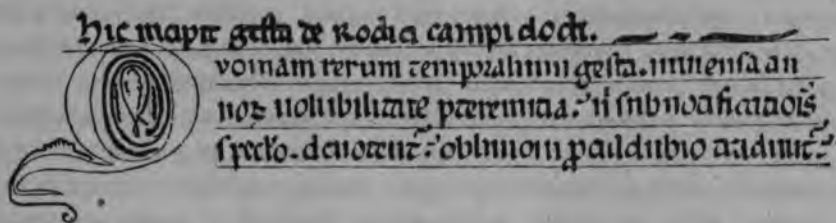 hic incipit gesta de Rodici campi docti.
Quoniam rerum temporalium gesta. inmensa an
noꝝ uolubilitate pretereuntia. nͥ sub notificationis
specło. denotentͬ. obliuioni ꝓculdubio tradunt.